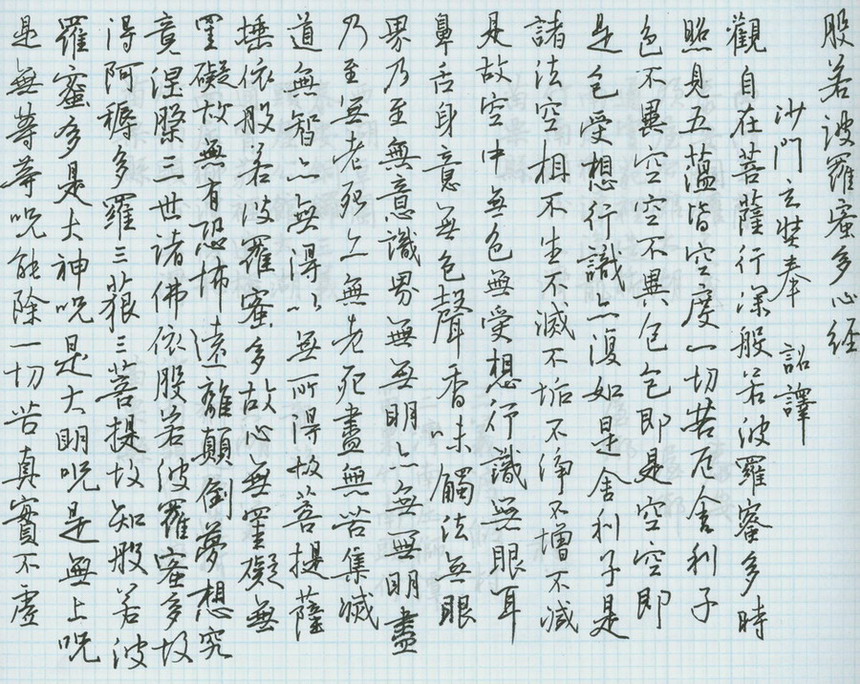 般若波羅蜜多心經
沙門玄奘奉 詔譯
觀自在菩薩行深般若波羅蜜多時
照見五蘊皆空度一切苦厄舍利子
色不異空空不異色色即是空空即
是色受想行識亦復如是舍利子是
諸法空相不生不滅不垢不淨不增不減
是故空中無色無受想行識無眼耳
鼻舌身意無色聲香味觸法無眼
界乃至無意識界無無明亦無無明盡
乃至無老死亦無老死盡無苦集滅
道無智亦無得以無所得故菩提薩
埵依般若波羅蜜多故心無罣礙無
罣礙故無有恐怖遠離顛倒夢想究
竟涅槃三世諸佛依般若波羅蜜多故
得阿耨多羅三藐三菩提故知般若波
羅蜜多是大神呪是大明呪是無上呪
是無等等呪能除一切苦真實不虛